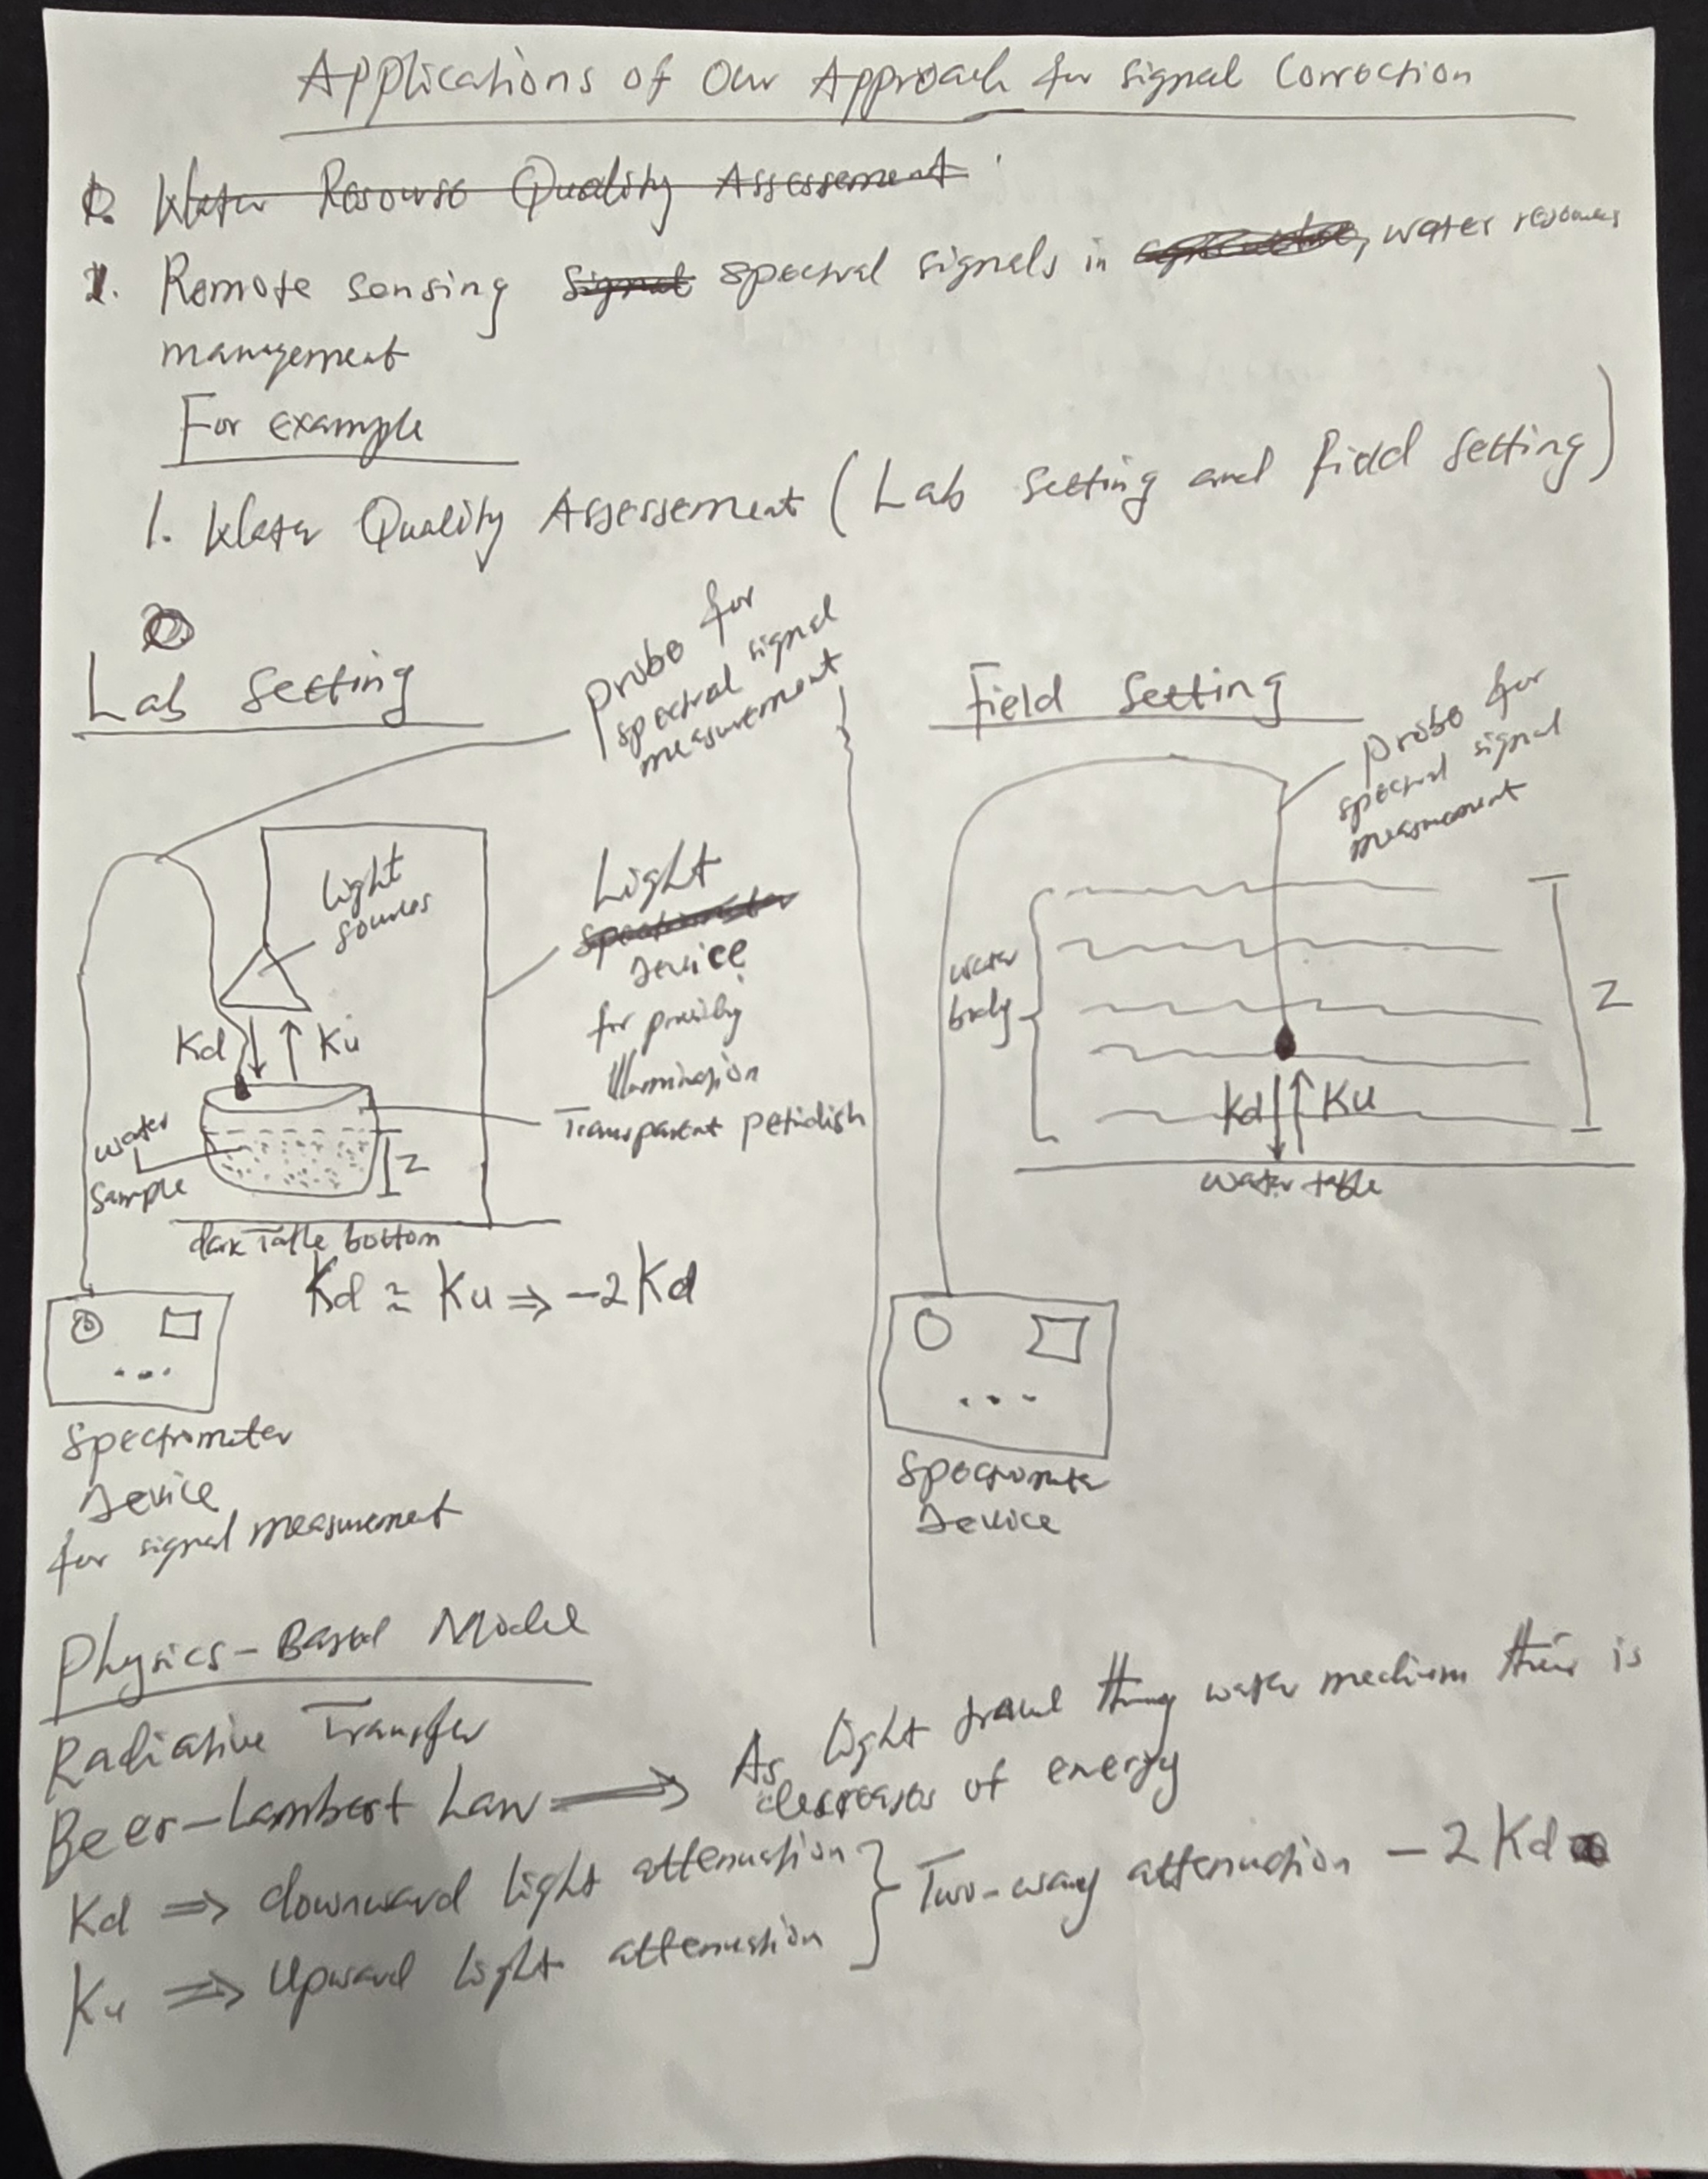 Applications of Our Approach for signal Correction
1. Water Resourse Quality Assessement
1. Remote sensing signal spectral signals in , water resources
management
For example
1. Water Quality Assessement (Lab setting and field setting)
Lab setting
probe for
spectral signal
measurement
light
sources
Light
spectrometer
Device
for providing
Illumination
Kd Ku
Transparent petridish
water
sample
Z
dark Table bottom
Kd ≃ Ku ⇒ -2Kd
...
Spectrometer
Device
for signal measurement
Field setting
probe for
spectral signal
measurement
water
body
Z
Kd Ku
water table
...
Spectrometer
Device
Physics-Based Model
Radiative Transfer
Beer-Lambert Law ⟹ As light travel water medium their is
decreases of energy
Kd ⇒ downward light attenuation
Ku ⇒ Upward light attenuation
} Two-way attenuation -2Kd